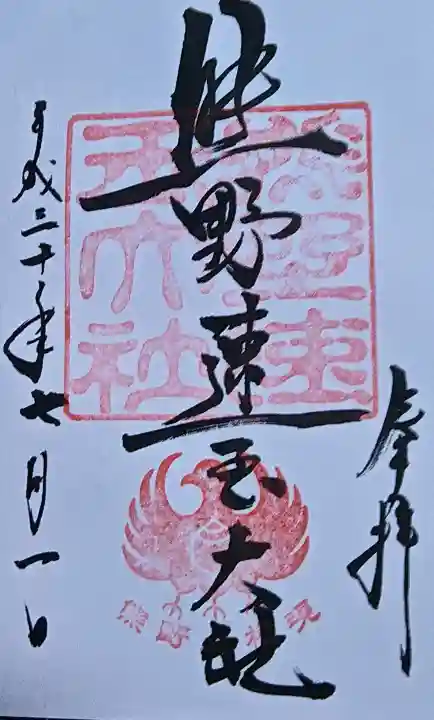 奉拝
熊野速玉大社
平成三十年七月一日
熊野速玉大社